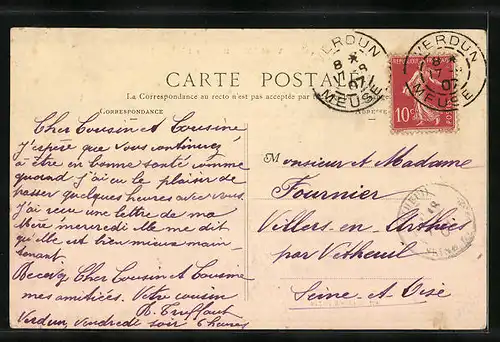 CARTE POSTALE
La Correspondance au recto n'est pas acceptée par
CORRESPONDANCE
Cher Cousin et Cousine
J'espère que vous continuez
à être en bonne santé comme
quand j'ai eu le plaisir de
passer quelques heures avec vous.
J'ai reçu une lettre de ma
Mère mercredi elle me dit
qu'elle est bien mieux main-
tenant.
Recevez Cher Cousin et Cousine
mes amitiées. Votre cousin
R. Truffaut
Verdun, Vendredi soir 6 heures
VERDUN
8
07
MEUSE
VERDUN
8
7
07
MEUSE
REPUBLIQUE FRANÇAISE
10c
POSTES
ADRESSE
Monsieur et Madame
Fournier
Villers en Arthies
par Vétheuil
Seine-et-Oise